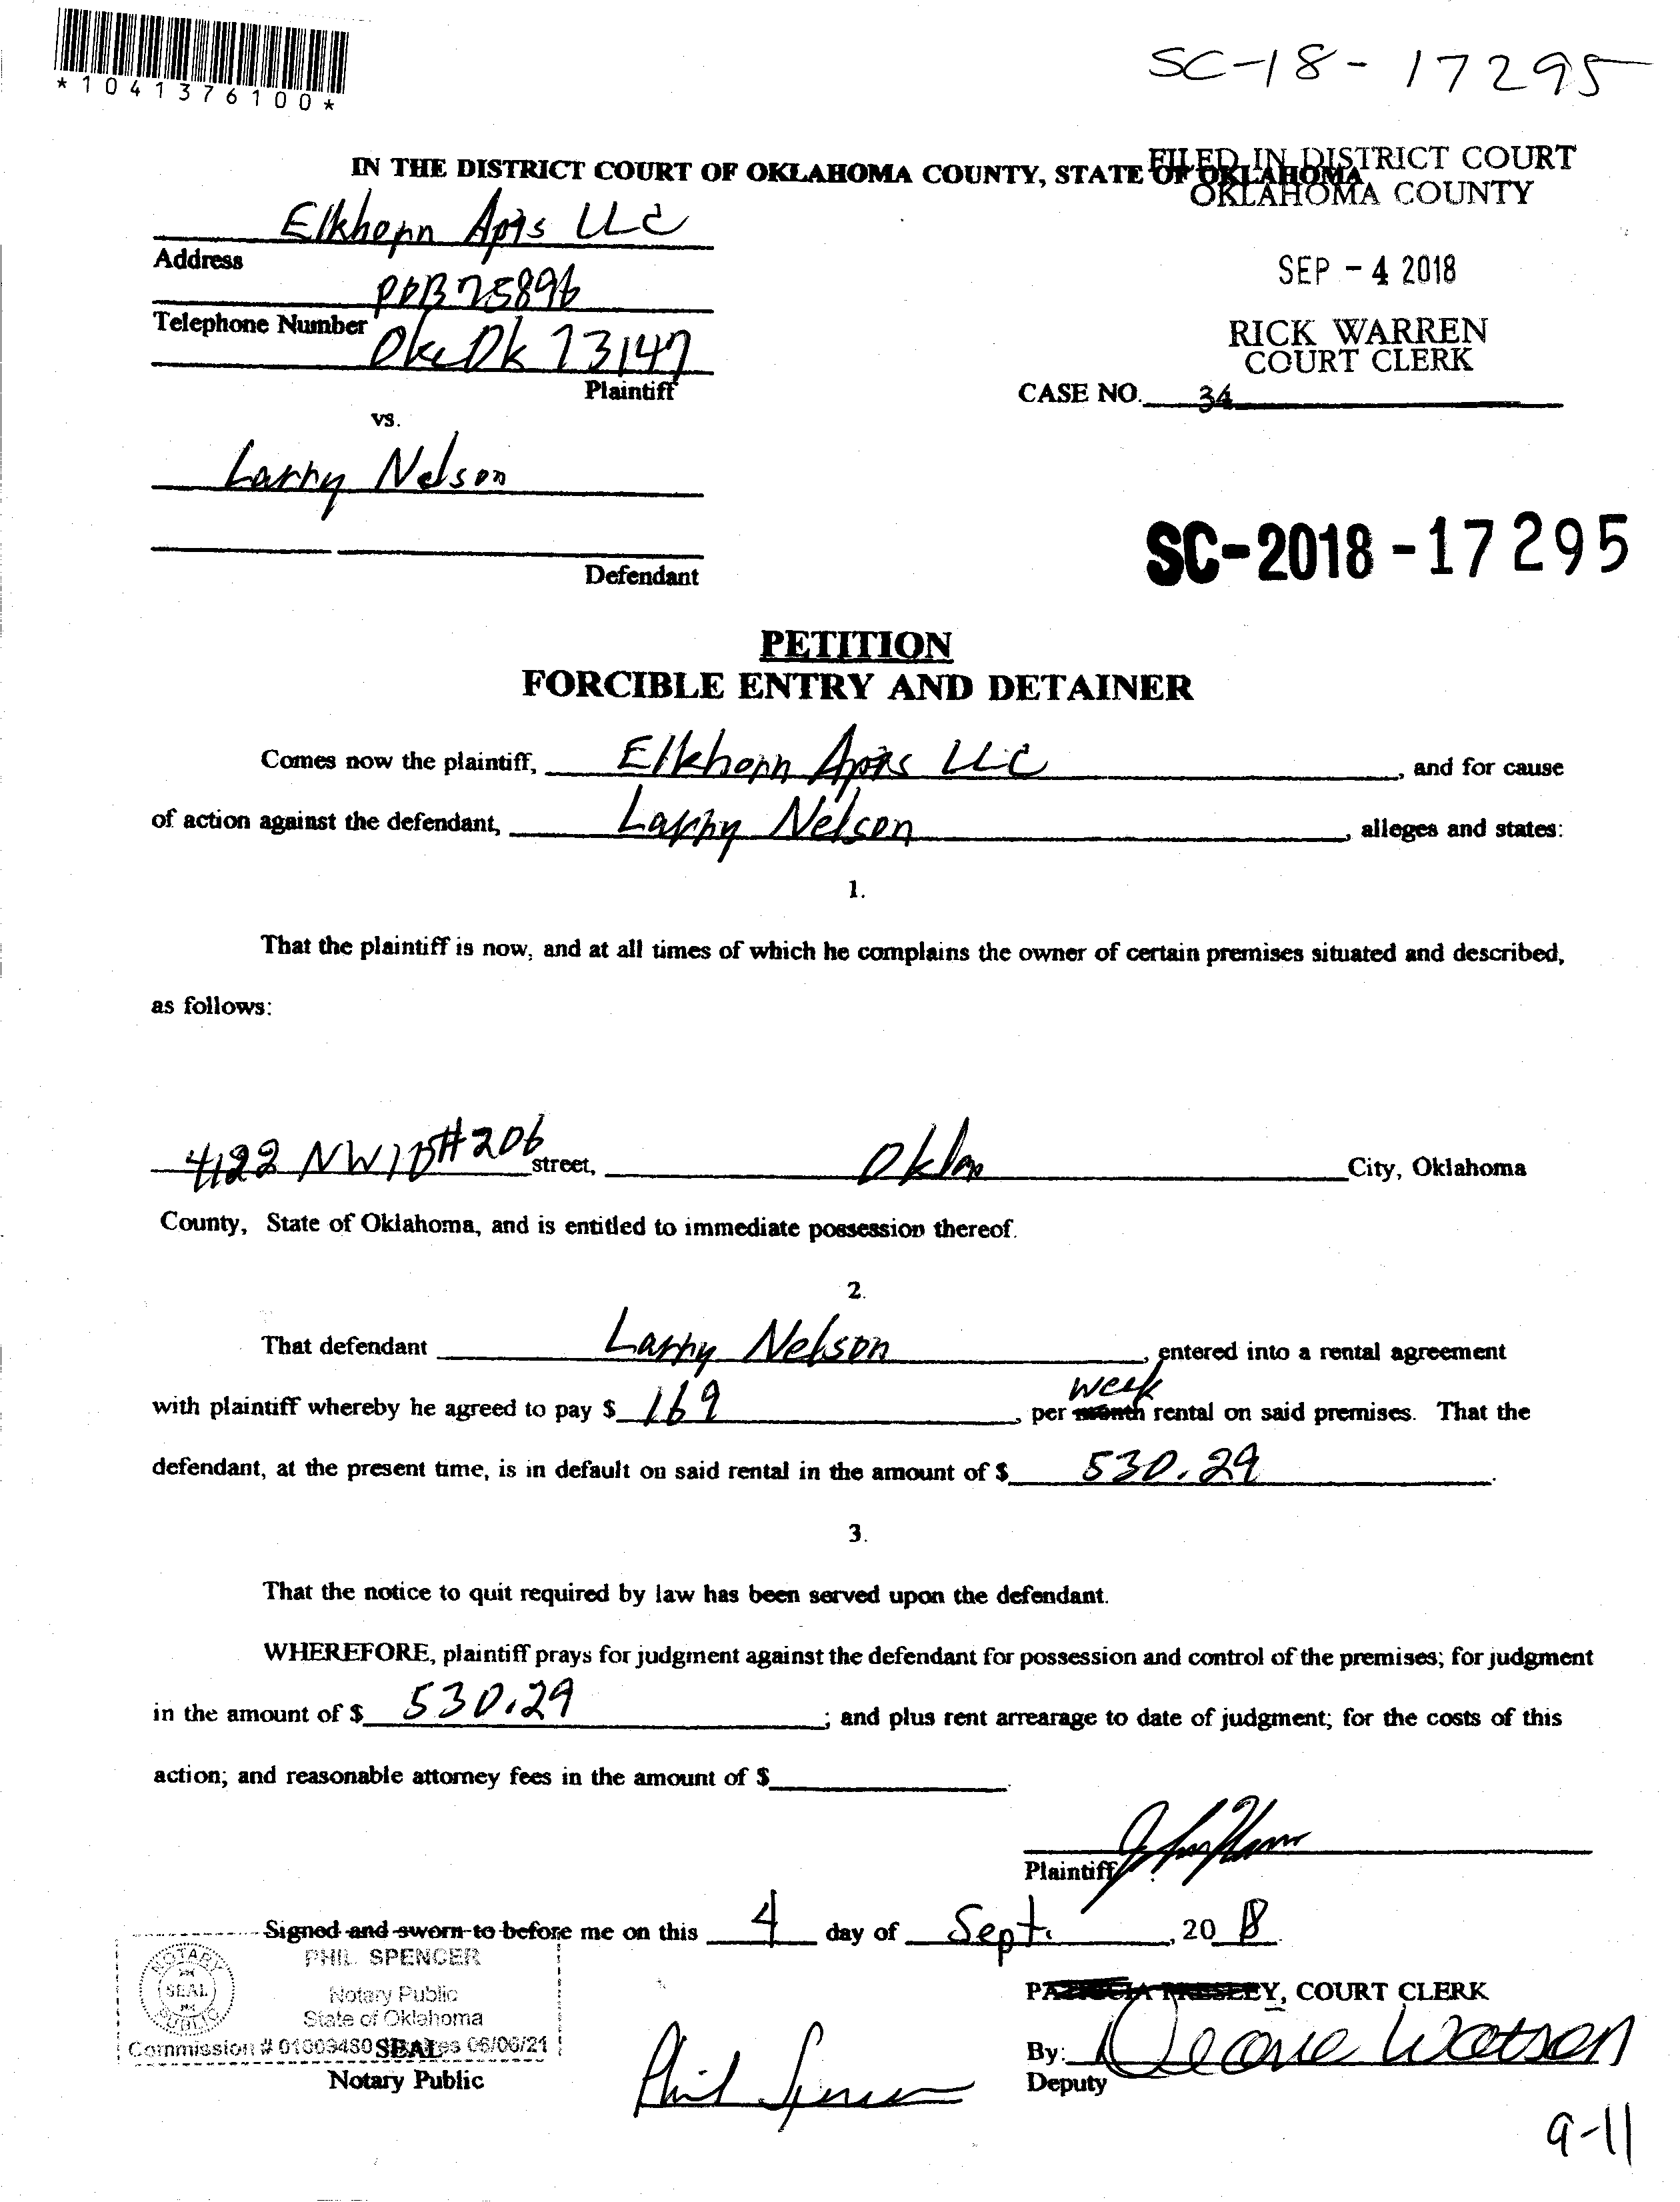 *1041376100*
SC-18-17295
IN THE DISTRICT COURT OF OKLAHOMA COUNTY, STATE OF OKLAHOMA
FILED IN DISTRICT COURT
OKLAHOMA COUNTY
Elkhorn Apts LLC
Address
POB 75896
SEP - 4 2018
Telephone Number
Okc Ok 73147
RICK WARREN
COURT CLERK
Plaintiff
CASE NO. 34
vs.
Larry Nelson
SC-2018-17295
Defendant
PETITION
FORCIBLE ENTRY AND DETAINER
Comes now the plaintiff, Elkhorn Apts LLC, and for cause
of action against the defendant, Larry Nelson, alleges and states:
1.
That the plaintiff is now, and at all times of which he complains the owner of certain premises situated and described,
as follows:
4122 NW10 #206 street, Oklahoma City, Oklahoma
County, State of Oklahoma, and is entitled to immediate possession thereof.
2.
That defendant Larry Nelson, entered into a rental agreement
week
with plaintiff whereby he agreed to pay $ 169, per month rental on said premises. That the
defendant, at the present time, is in default on said rental in the amount of $ 530.29.
3.
That the notice to quit required by law has been served upon the defendant.
WHEREFORE, plaintiff prays for judgment against the defendant for possession and control of the premises; for judgment
in the amount of $ 530.29; and plus rent arrearage to date of judgment; for the costs of this
action; and reasonable attorney fees in the amount of $ .
Plaintiff
Signed and sworn to before me on this 4 day of Sept., 20 18.
PHIL SPENCER
Notary Public
State of Oklahoma
Commission # 01003480 Expires 06/06/21
NOTARY
SEAL
PUBLIC
SEAL
Notary Public
Phil Spencer
PATRICIA PRESLEY, COURT CLERK
By: Watson
Deputy
9-11